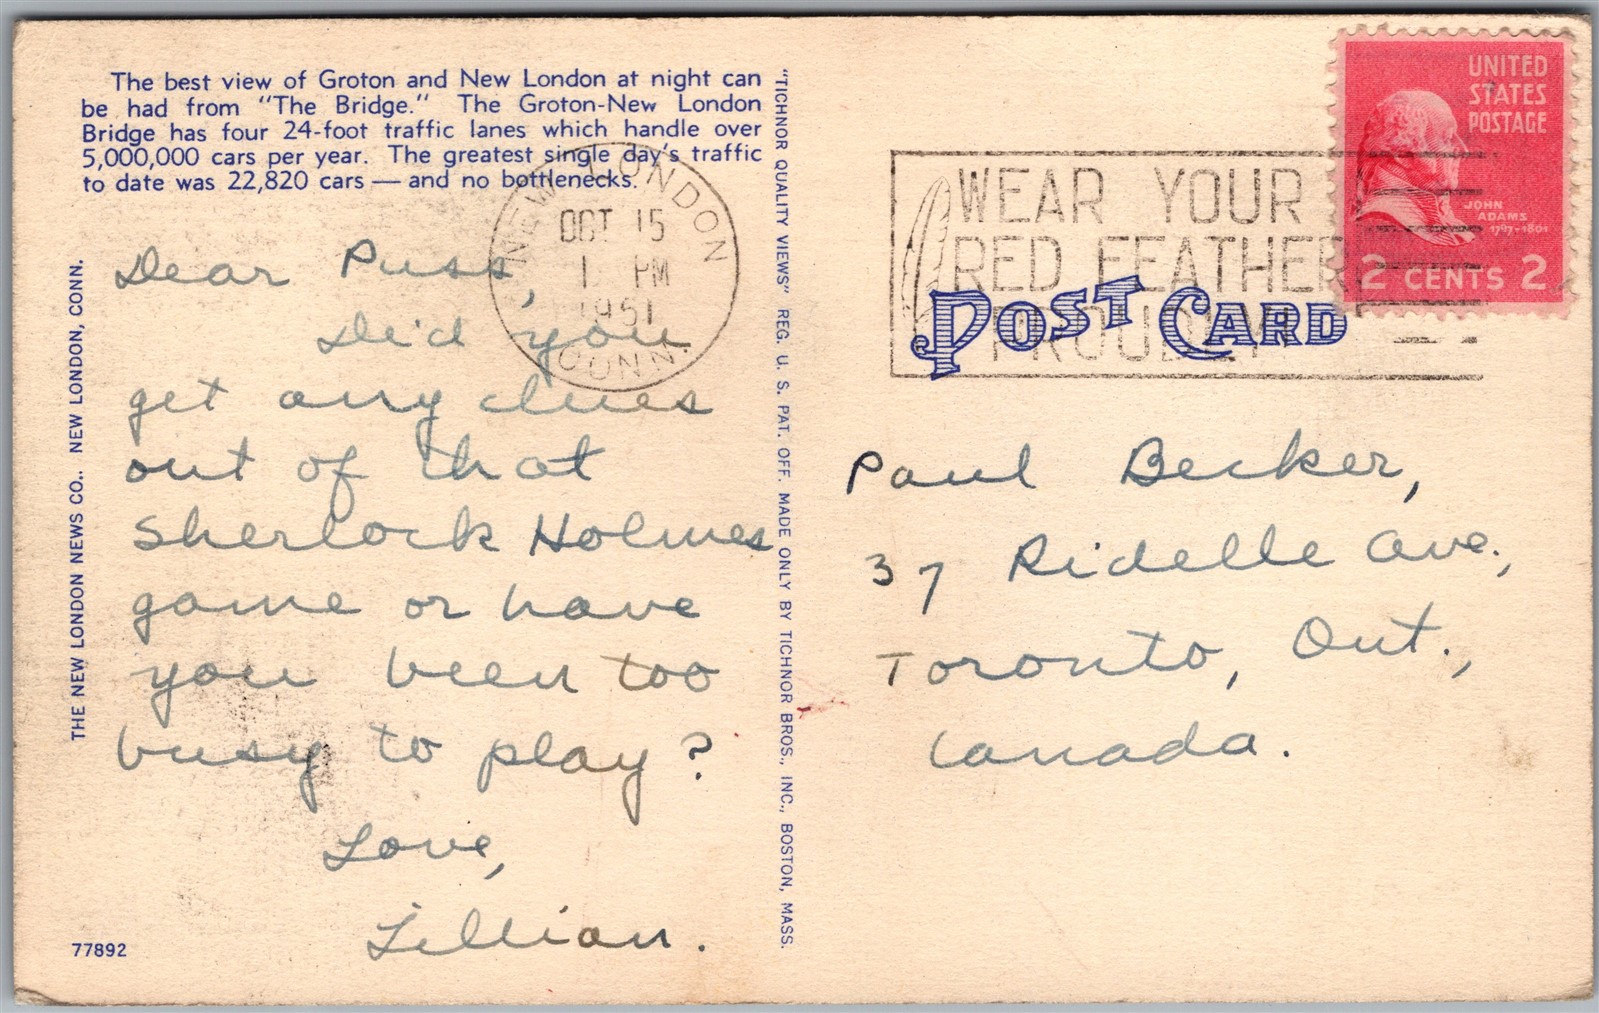 The best view of Groton and New London at night can
be had from "The Bridge." The Groton-New London
Bridge has four 24-foot traffic lanes which handle over
5,000,000 cars per year. The greatest single day's traffic
to date was 22,820 cars — and no bottlenecks.
NEW LONDON
OCT 15
1 PM
1951
CONN.
Dear Puss,
Did you
get any clues
out of that
Sherlock Holmes
game or have
you been too
busy to play?
Love,
Lillian.
THE NEW LONDON NEWS CO., NEW LONDON, CONN.
77892
"TICHNOR QUALITY VIEWS" REG. U. S. PAT. OFF. MADE ONLY BY TICHNOR BROS., INC., BOSTON, MASS.
WEAR YOUR
RED FEATHER
PROUDLY
POST CARD
UNITED
STATES
POSTAGE
JOHN
ADAMS
1797-1801
2 CENTS 2
Paul Becker,
37 Ridelle Ave.,
Toronto, Ont.,
Canada.